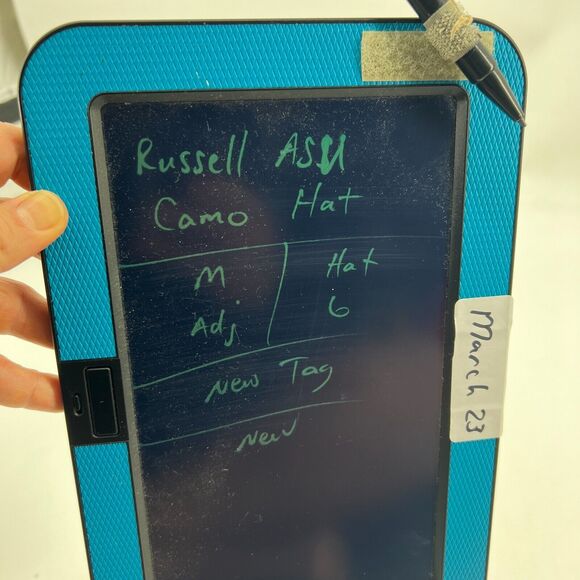 Russell ASU
Camo Hat
M Hat
Adj 6
New Tag
New
March 23